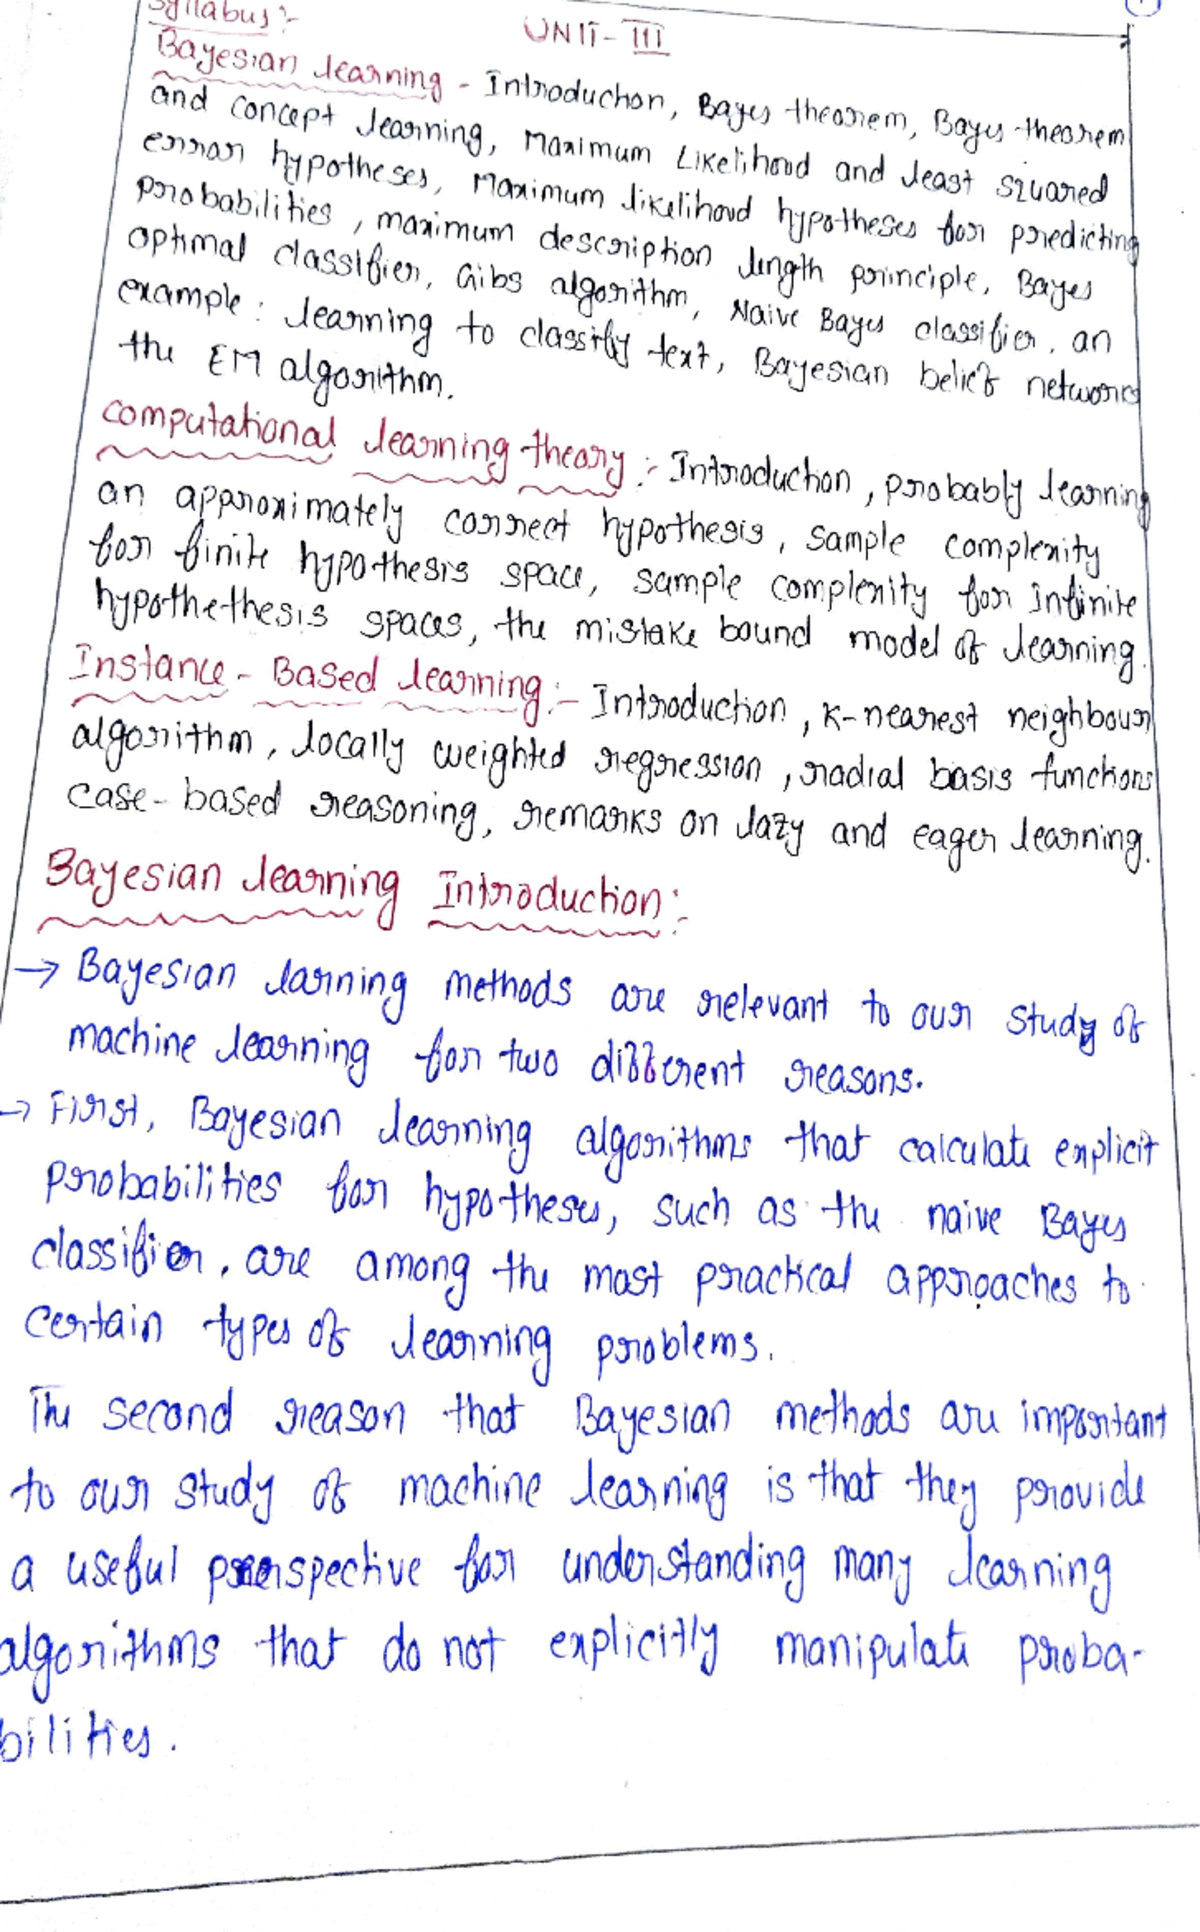 Syllabus :-
UNIT - III
Bayesian learning - Introduction, Bayes theorem, Bayes theorem
and concept learning, Maximum Likelihood and least squared
error hypotheses, Maximum likelihood hypotheses for predicting
probabilities, maximum description length principle, Bayes
optimal classifier, Gibs algorithm, Naive Bayes classifier, an
example : learning to classify text, Bayesian belief networks
the EM algorithm.
Computational learning theory :- Introduction, probably learning
an approximately correct hypothesis, sample complexity
for finite hypothesis space, sample complexity for infinite
hypothethesis spaces, the mistake bound model of learning.
Instance - Based learning :- Introduction, K-nearest neighbour
algorithm, locally weighted regression, radial basis functions
case-based reasoning, remarks on lazy and eager learning.
Bayesian learning Introduction :-
→ Bayesian larning methods are relevant to our study of
machine learning for two different reasons.
→ First, Bayesian learning algorithms that calculate explicit
probabilities for hypotheses, such as the naive Bayes
classifier, are among the most practical approaches to
certain types of learning problems.
The second reason that Bayesian methods are important
to our study of machine learning is that they provide
a useful perspective for understanding many learning
algorithms that do not explicitly manipulate proba-
bilities.